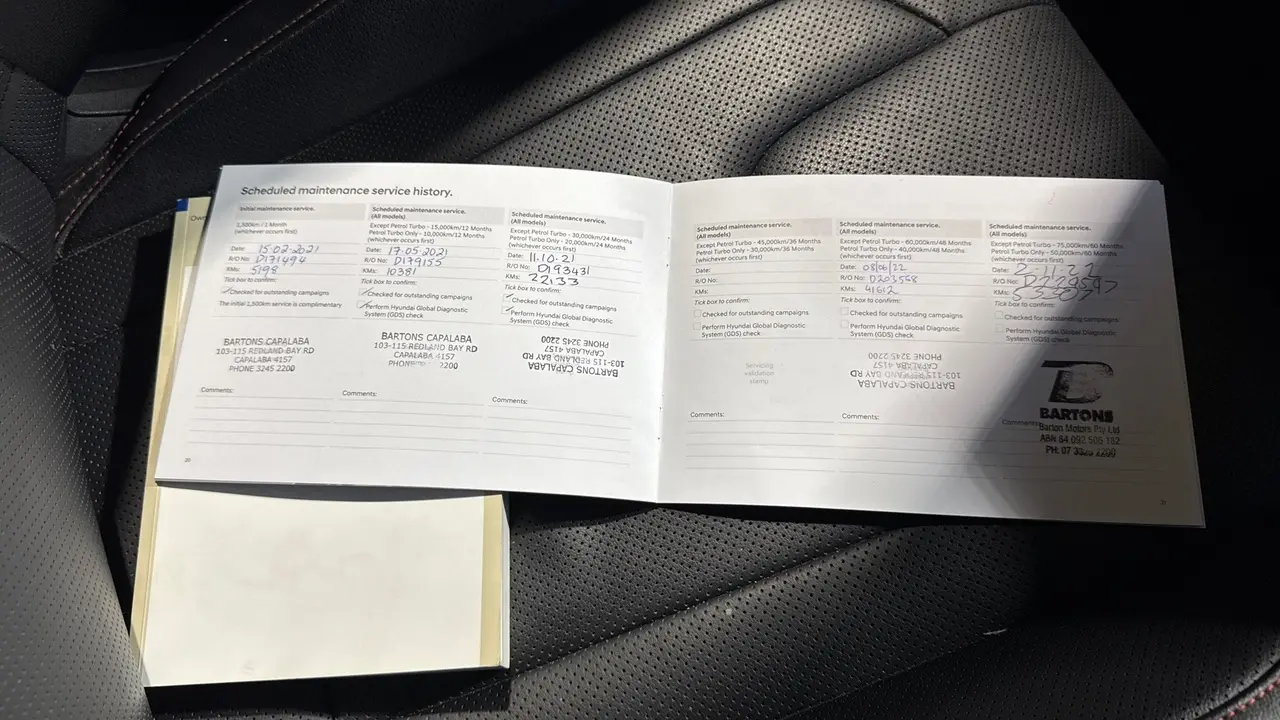 Own
Scheduled maintenance service history.
Initial maintenance service.
1,500km / 1 Month
(whichever occurs first)
Date: 15-02-2021
R/O No: D171494
KMs: 5198
Tick box to confirm:
Checked for outstanding campaigns
The initial 1,500km service is complimentary
BARTONS CAPALABA
103-115 REDLAND BAY RD
CAPALABA 4157
PHONE 3245 2200
Comments:
20
Scheduled maintenance service.
(All models)
Except Petrol Turbo - 15,000km/12 Months
Petrol Turbo Only - 10,000km/12 Months
(whichever occurs first)
Date: 17-05-2021
R/O No: D179155
KMs: 10381
Tick box to confirm:
Checked for outstanding campaigns
Perform Hyundai Global Diagnostic
System (GDS) check
BARTONS CAPALABA
103-115 REDLAND BAY RD
CAPALABA 4157
PHONE 2200
Comments:
Scheduled maintenance service.
(All models)
Except Petrol Turbo - 30,000km/24 Months
Petrol Turbo Only - 20,000km/24 Months
(whichever occurs first)
Date: 11.10.21
R/O No: D193431
KMs: 22133
Tick box to confirm:
Checked for outstanding campaigns
Perform Hyundai Global Diagnostic
System (GDS) check
BARTONS CAPALABA
103-115 REDLAND BAY RD
CAPALABA 4157
PHONE 3245 2200
Comments:
Scheduled maintenance service.
(All models)
Except Petrol Turbo - 45,000km/36 Months
Petrol Turbo Only - 30,000km/36 Months
(whichever occurs first)
Date:
R/O No:
KMs:
Tick box to confirm:
Checked for outstanding campaigns
Perform Hyundai Global Diagnostic
System (GDS) check
Servicing
validation
stamp
Comments:
Scheduled maintenance service.
(All models)
Except Petrol Turbo - 60,000km/48 Months
Petrol Turbo Only - 40,000km/48 Months
(whichever occurs first)
Date: 08/06/22
R/O No: D203558
KMs: 41612
Tick box to confirm:
Checked for outstanding campaigns
Perform Hyundai Global Diagnostic
System (GDS) check
BARTONS CAPALABA
103-115 REDLAND BAY RD
CAPALABA 4157
PHONE 3245 2200
Comments:
Scheduled maintenance service.
(All models)
Except Petrol Turbo - 75,000km/60 Months
Petrol Turbo Only - 50,000km/60 Months
(whichever occurs first)
Date:
R/O No:
KMs:
Tick box to confirm:
Checked for outstanding campaigns
Perform Hyundai Global Diagnostic
System (GDS) check
BARTONS
Barton Motors Pty Ltd
ABN 84 092 505 182
PH: 07 2200
Comments:
21